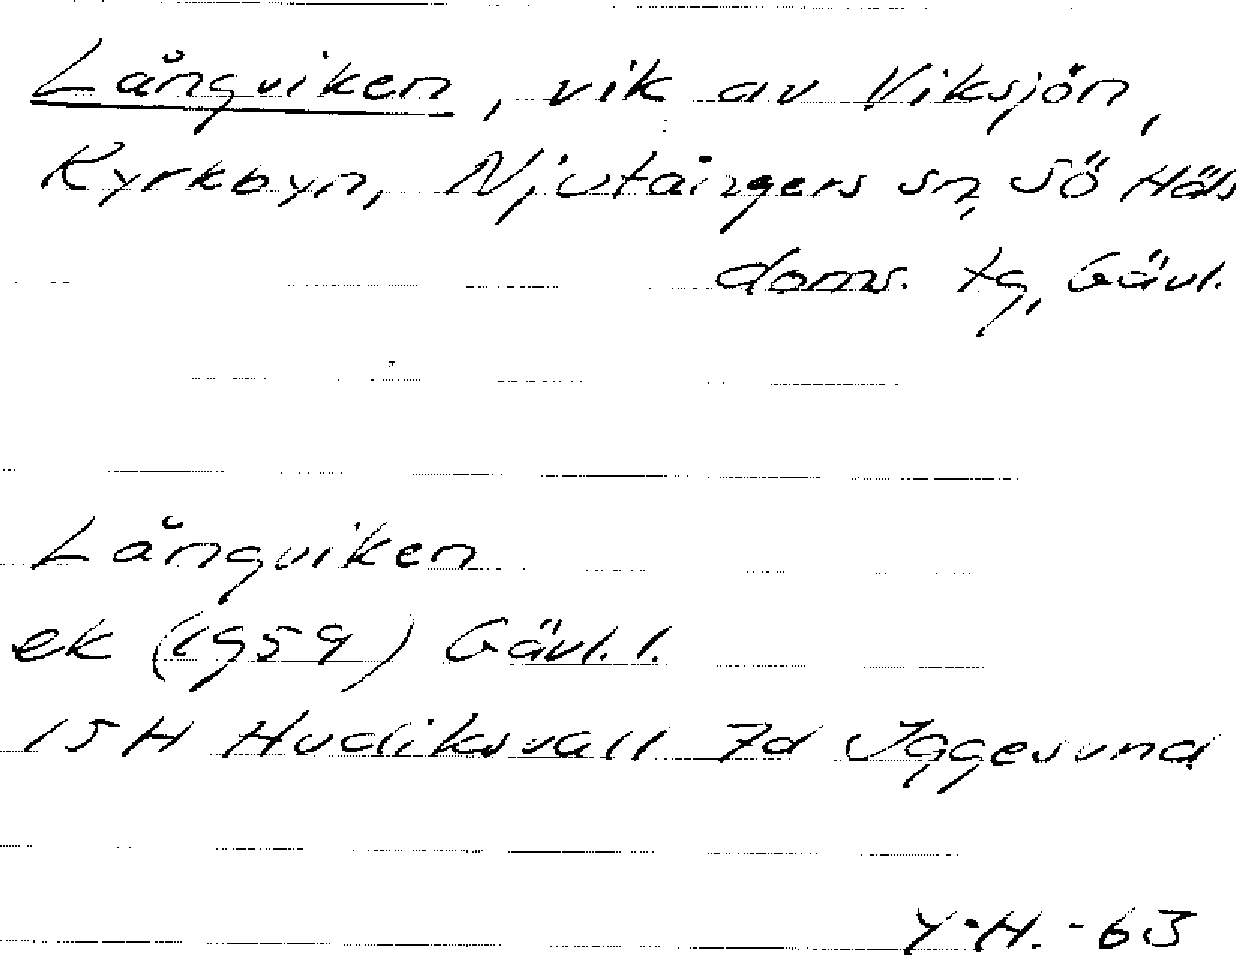 Långviken, vik av Viksjön,
Kyrkbyn, Njutångers sn, Sö Häls
doms. tg, Gävl.
Långviken
ek (1959) Gävl. l.
15H Hudiksvall 7d Iggesund
Y.H. - 63